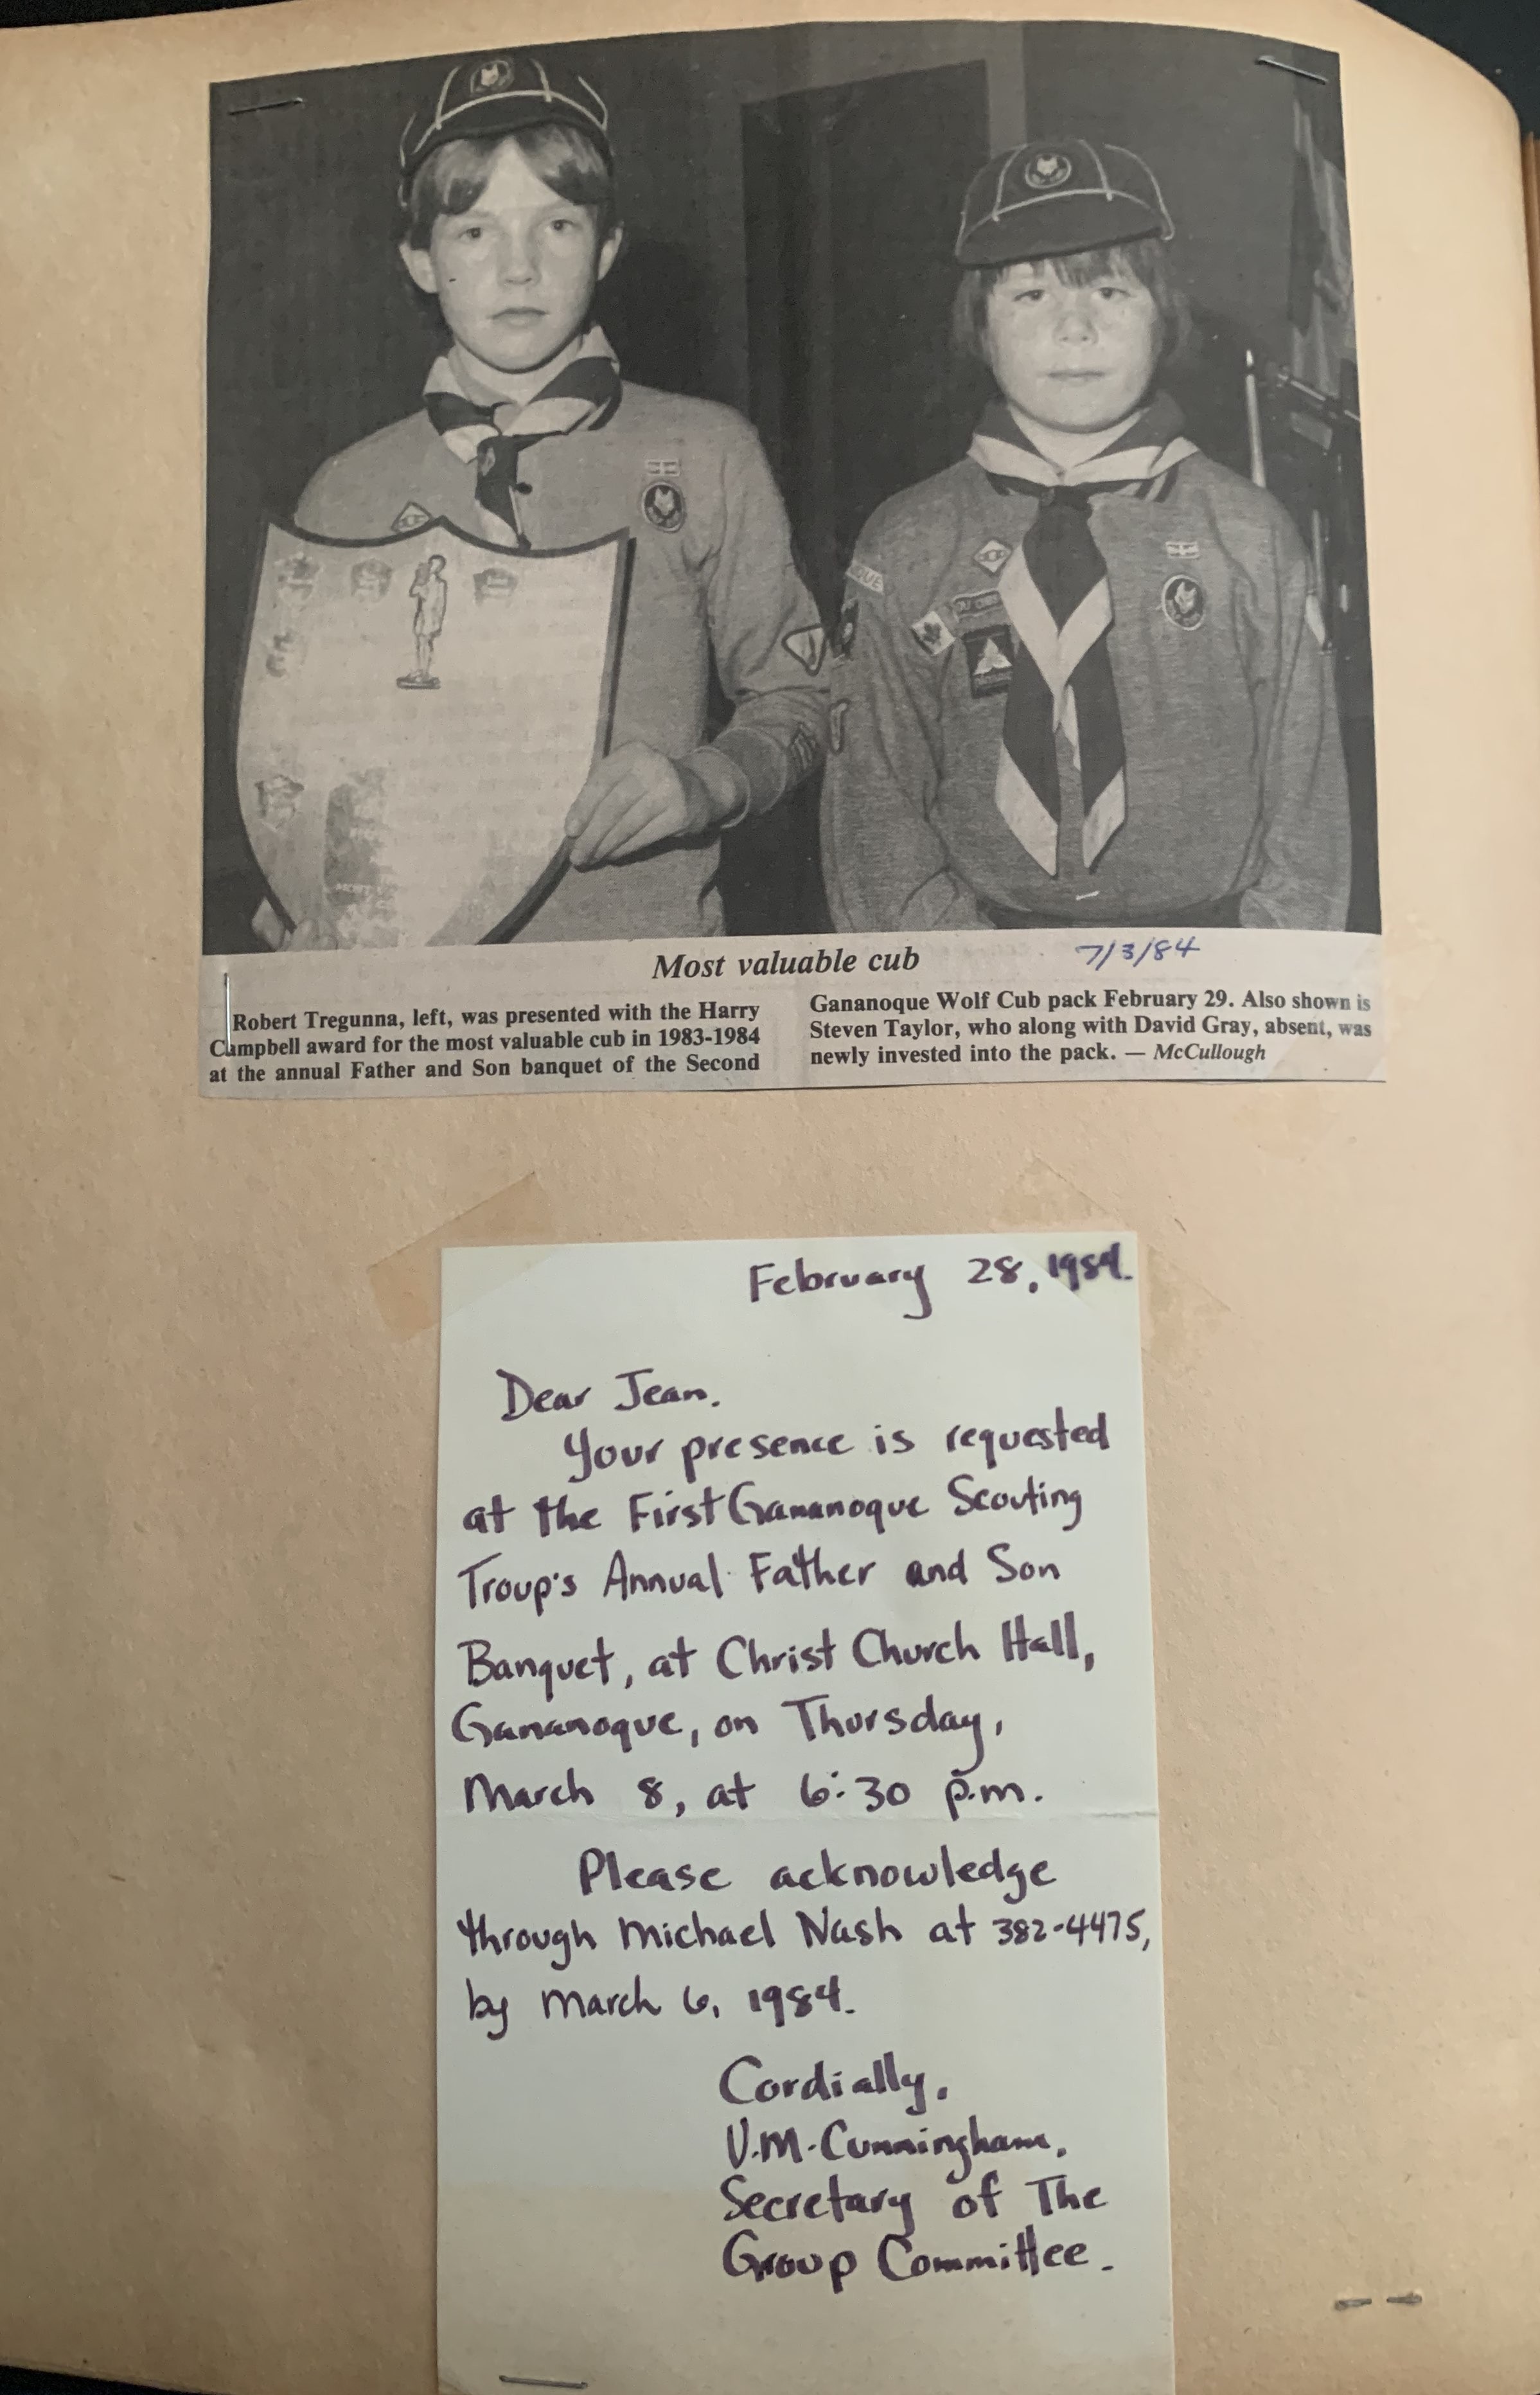 Most valuable cub
7/3/84
Robert Tregunna, left, was presented with the Harry
Campbell award for the most valuable cub in 1983-1984
at the annual Father and Son banquet of the Second
Gananoque Wolf Cub pack February 29. Also shown is
Steven Taylor, who along with David Gray, absent, was
newly invested into the pack. — McCullough
February 28, 1984.
Dear Jean.
Your presence is requested
at the First Gananoque Scouting
Troup's Annual Father and Son
Banquet, at Christ Church Hall,
Gananoque, on Thursday,
March 8, at 6:30 p.m.
Please acknowledge
through Michael Nash at 382-4475,
by March 6, 1984.
Cordially,
V.M. Cunningham,
Secretary of The
Group Committee.